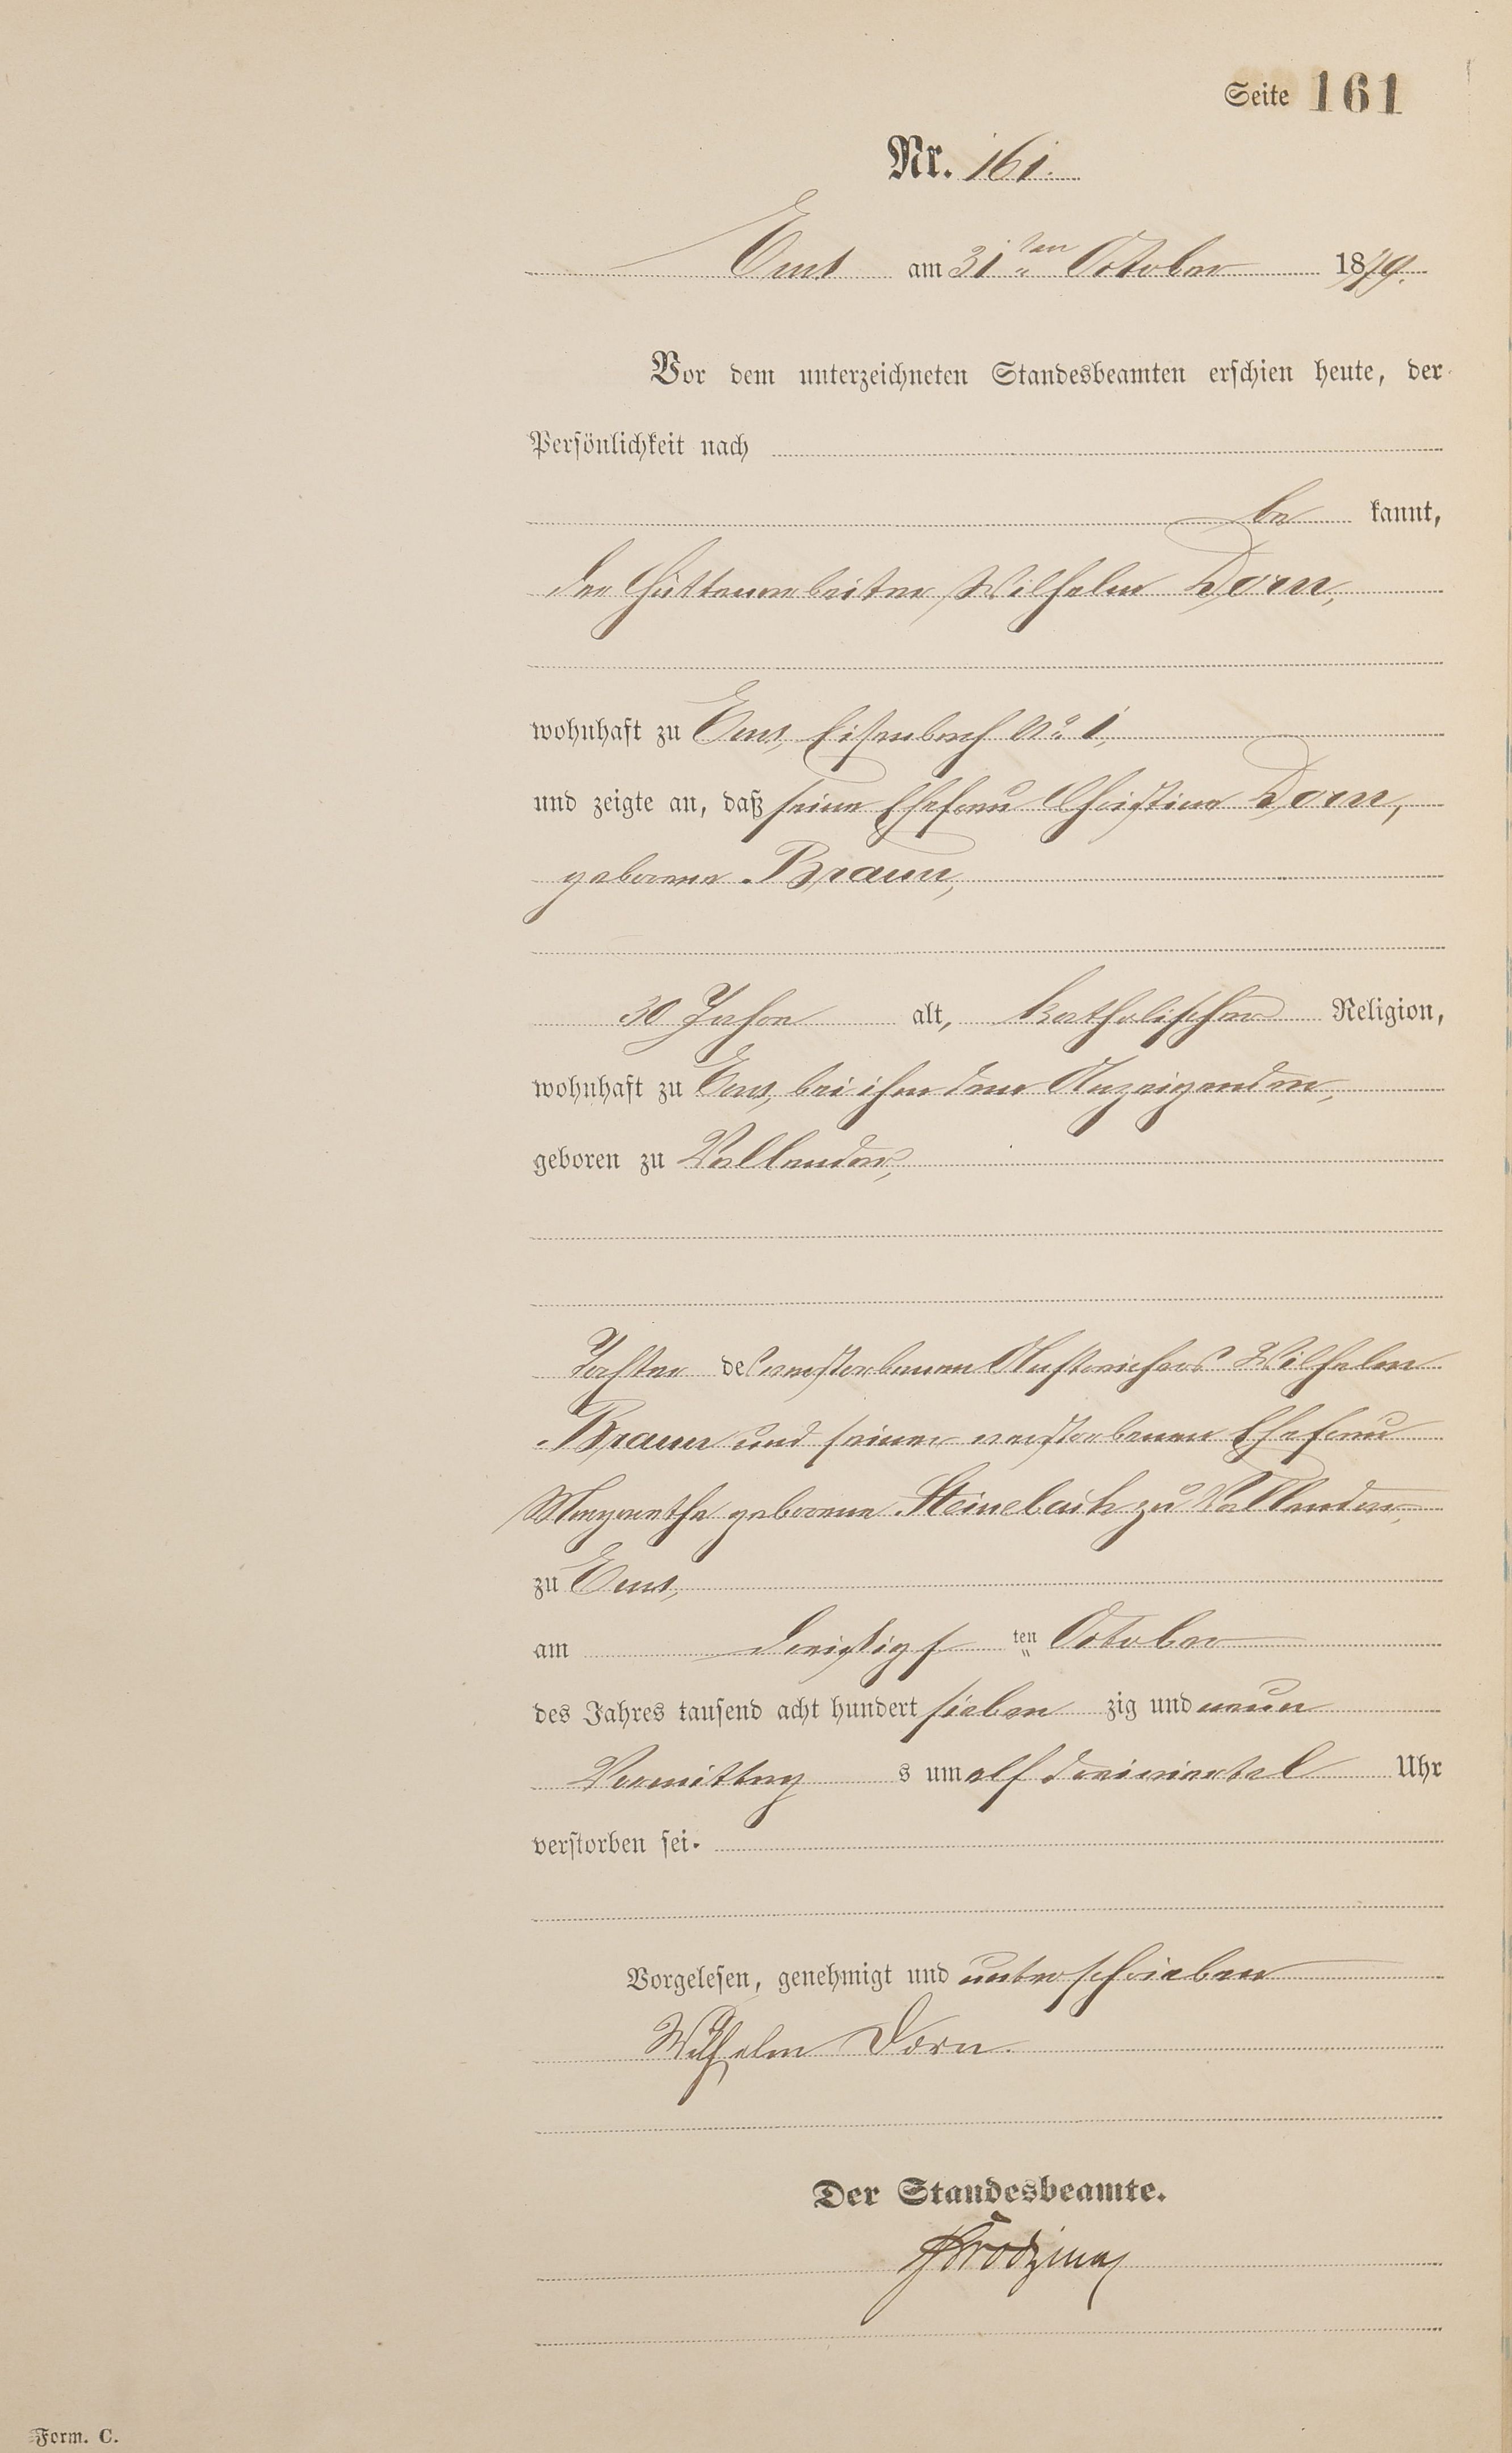 Seite 161
Nr. 161.
Ems am 31ten October 1879.
Vor dem unterzeichneten Standesbeamten erschien heute, der
Persönlichkeit nach
be kannt,
der Hüttenarbeiter Wilhelm Dorn,
wohnhaft zu Ems, Eisenbach No. 1,
und zeigte an, daß seine Ehefrau Christina Dorn,
geborene Braun,
30 Jahre alt, katholischer Religion,
wohnhaft zu Ems, bei ihm dem Anzeigenden,
geboren zu Vallendar,
Tochter des verstorbenen Wilhelm
Braun und seiner verstorbenen Ehefrau
Margarethe geborene Steinebach zu Vallendar,
zu Ems,
am dreißigs ten October
des Jahres tausend acht hundert sieben zig und neun
Vormittag s um elf dreiviertel Uhr
verstorben sei.
Vorgelesen, genehmigt und unterschrieben
Wilhelm Dorn.
Der Standesbeamte.
Form. C.